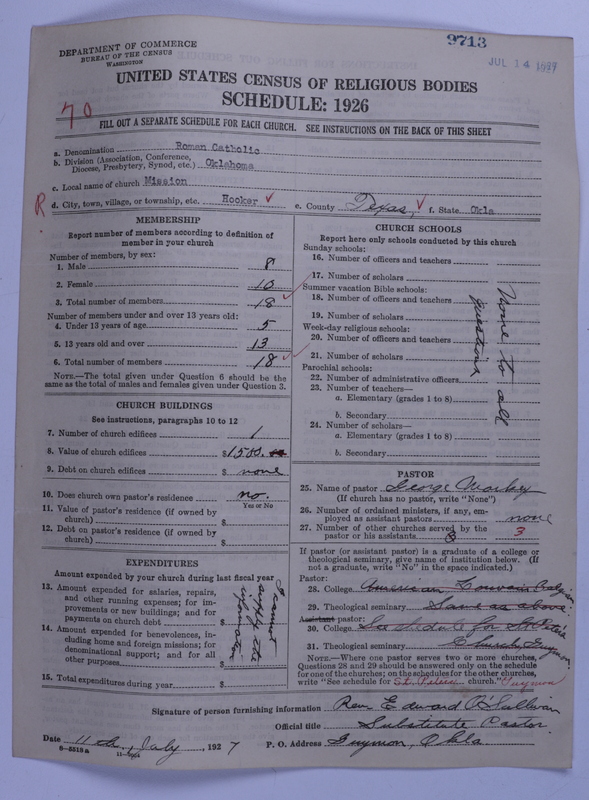 9713
JUL 14 1927
DEPARTMENT OF COMMERCE
BUREAU OF THE CENSUS
WASHINGTON
UNITED STATES CENSUS OF RELIGIOUS BODIES
SCHEDULE: 1926
70
FILL OUT A SEPARATE SCHEDULE FOR EACH CHURCH. SEE INSTRUCTIONS ON THE BACK OF THIS SHEET
a. Denomination Roman Catholic
b. Division (Association, Conference, Diocese, Presbytery, Synod, etc.) Oklahoma
c. Local name of church Mission
R d. City, town, village, or township, etc. Hooker ✓ e. County Texas, ✓ f. State Okla
MEMBERSHIP
Report number of members according to definition of
member in your church
Number of members, by sex:
1. Male 8
2. Female 10
3. Total number of members 18 ✓
Number of members under and over 13 years old:
4. Under 13 years of age 5
5. 13 years old and over 13
6. Total number of members 18 ✓
NOTE.—The total given under Question 6 should be the
same as the total of males and females given under Question 3.
CHURCH BUILDINGS
See instructions, paragraphs 10 to 12
7. Number of church edifices 1
8. Value of church edifices $1500.
9. Debt on church edifices $ none
10. Does church own pastor's residence no.
Yes or No
11. Value of pastor's residence (if owned by
church) $
12. Debt on pastor's residence (if owned by
church) $
EXPENDITURES
Amount expended by your church during last fiscal year
13. Amount expended for salaries, repairs,
and other running expenses; for im-
provements or new buildings; and for
payments on church debt $
14. Amount expended for benevolences, in-
cluding home and foreign missions; for
denominational support; and for all
other purposes $
15. Total expended during year $
I cannot
supply the
information
CHURCH SCHOOLS
Report here only schools conducted by this church
Sunday schools:
16. Number of officers and teachers
17. Number of scholars
Summer vacation Bible schools:
18. Number of officers and teachers
19. Number of scholars
Week-day religious schools:
20. Number of officers and teachers
21. Number of scholars
Parochial schools:
22. Number of administrative officers
23. Number of teachers—
a. Elementary (grades 1 to 8)
b. Secondary
24. Number of scholars—
a. Elementary (grades 1 to 8)
b. Secondary
None to all
questions
PASTOR
25. Name of pastor George
(If church has no pastor, write "None")
26. Number of ordained ministers, if any, em-
ployed as assistant pastors none
27. Number of other churches served by the
pastor or his assistants 3
If pastor (or assistant pastor) is a graduate of a college or
theological seminary, give name of institution below. (If
not a graduate, write "No" in the space indicated.)
Pastor:
28. College American Louvain Belgium
29. Theological seminary Same as above.
Assistant pastor:
30. College See schedule for St Peter's
31. Theological seminary Church, Guymon
NOTE.—Where one pastor serves two or more churches,
Questions 28 and 29 should be answered only on the schedule
for one of the churches; on the schedules for the other churches,
write "See schedule for St. Peters church." Guymon
Signature of person furnishing information Rev. Edward O'Sullivan
Official title Substitute Pastor.
Date 11th, July, 1927 P. O. Address Guymon, Okla